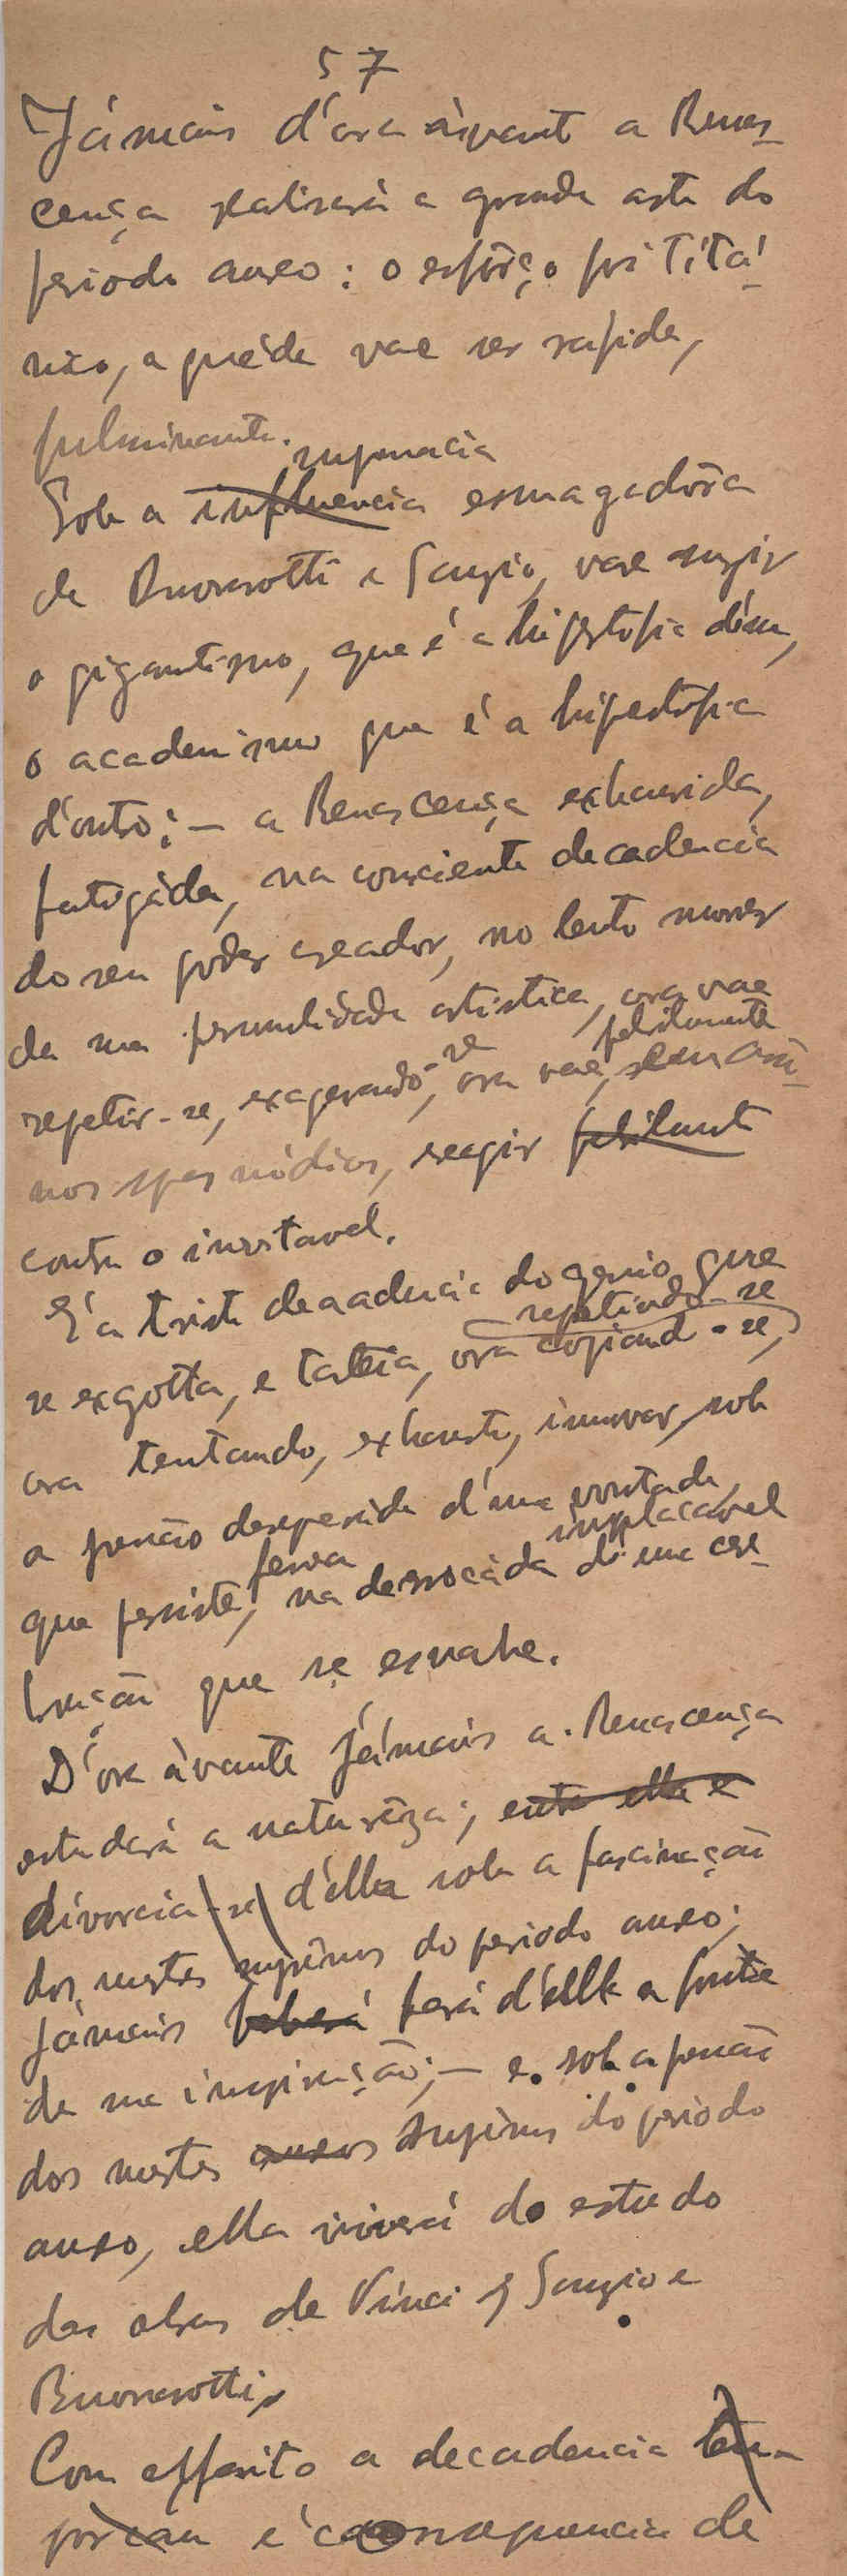 57
Jámais d'ora àvant a Renas-
cença realisará a grande arte do
periodo aureo: o esfôrço foi titá-
nico, a quéda vae ser rapida,
fulminante.
supremacia
Sob a influencia esmagadôra
de Buonarotti e Sanzio, vae surgir
o gigantismo, que é a hipertrofia d'um,
o academismo que é a hipertrofia
d'outro; — a Renascença exhaurida,
fatigáda, na consciente decadencia
do seu poder creador, no lento morrer
da sua personalidade artistica, ora vae
febrilmente
repetir-se, exagerando-se, ora vae,
nos espasmódicos, reagir febrilmente
contra o inevitavel.
É a triste decadencia do genio que
repetindo-se
se exgotta, e tacteia, ora copiando-se,
ora tentando, exhausto, innovar, sob
a pressão desesperada d'uma vontade
ferrea implacável
que persiste, na derrocáda d'uma cere-
bração que se esvahe.
D'ora àvante jámais a Renascença
estudará a naturêza; entre ella e
divorcia-se d'élla sob a fascinação
dos mestres suprêmos do periodo aureo;
jámais beberá fará d'élla a fonte
de sua inspiração; — e sob a pressão
dos mestres aureos suprêmos do periodo
aureo, ella viverá do estudo
das obras de Vinci, Sanzio e
Buonarotti.
Com effeito a decadencia
é consequencia de